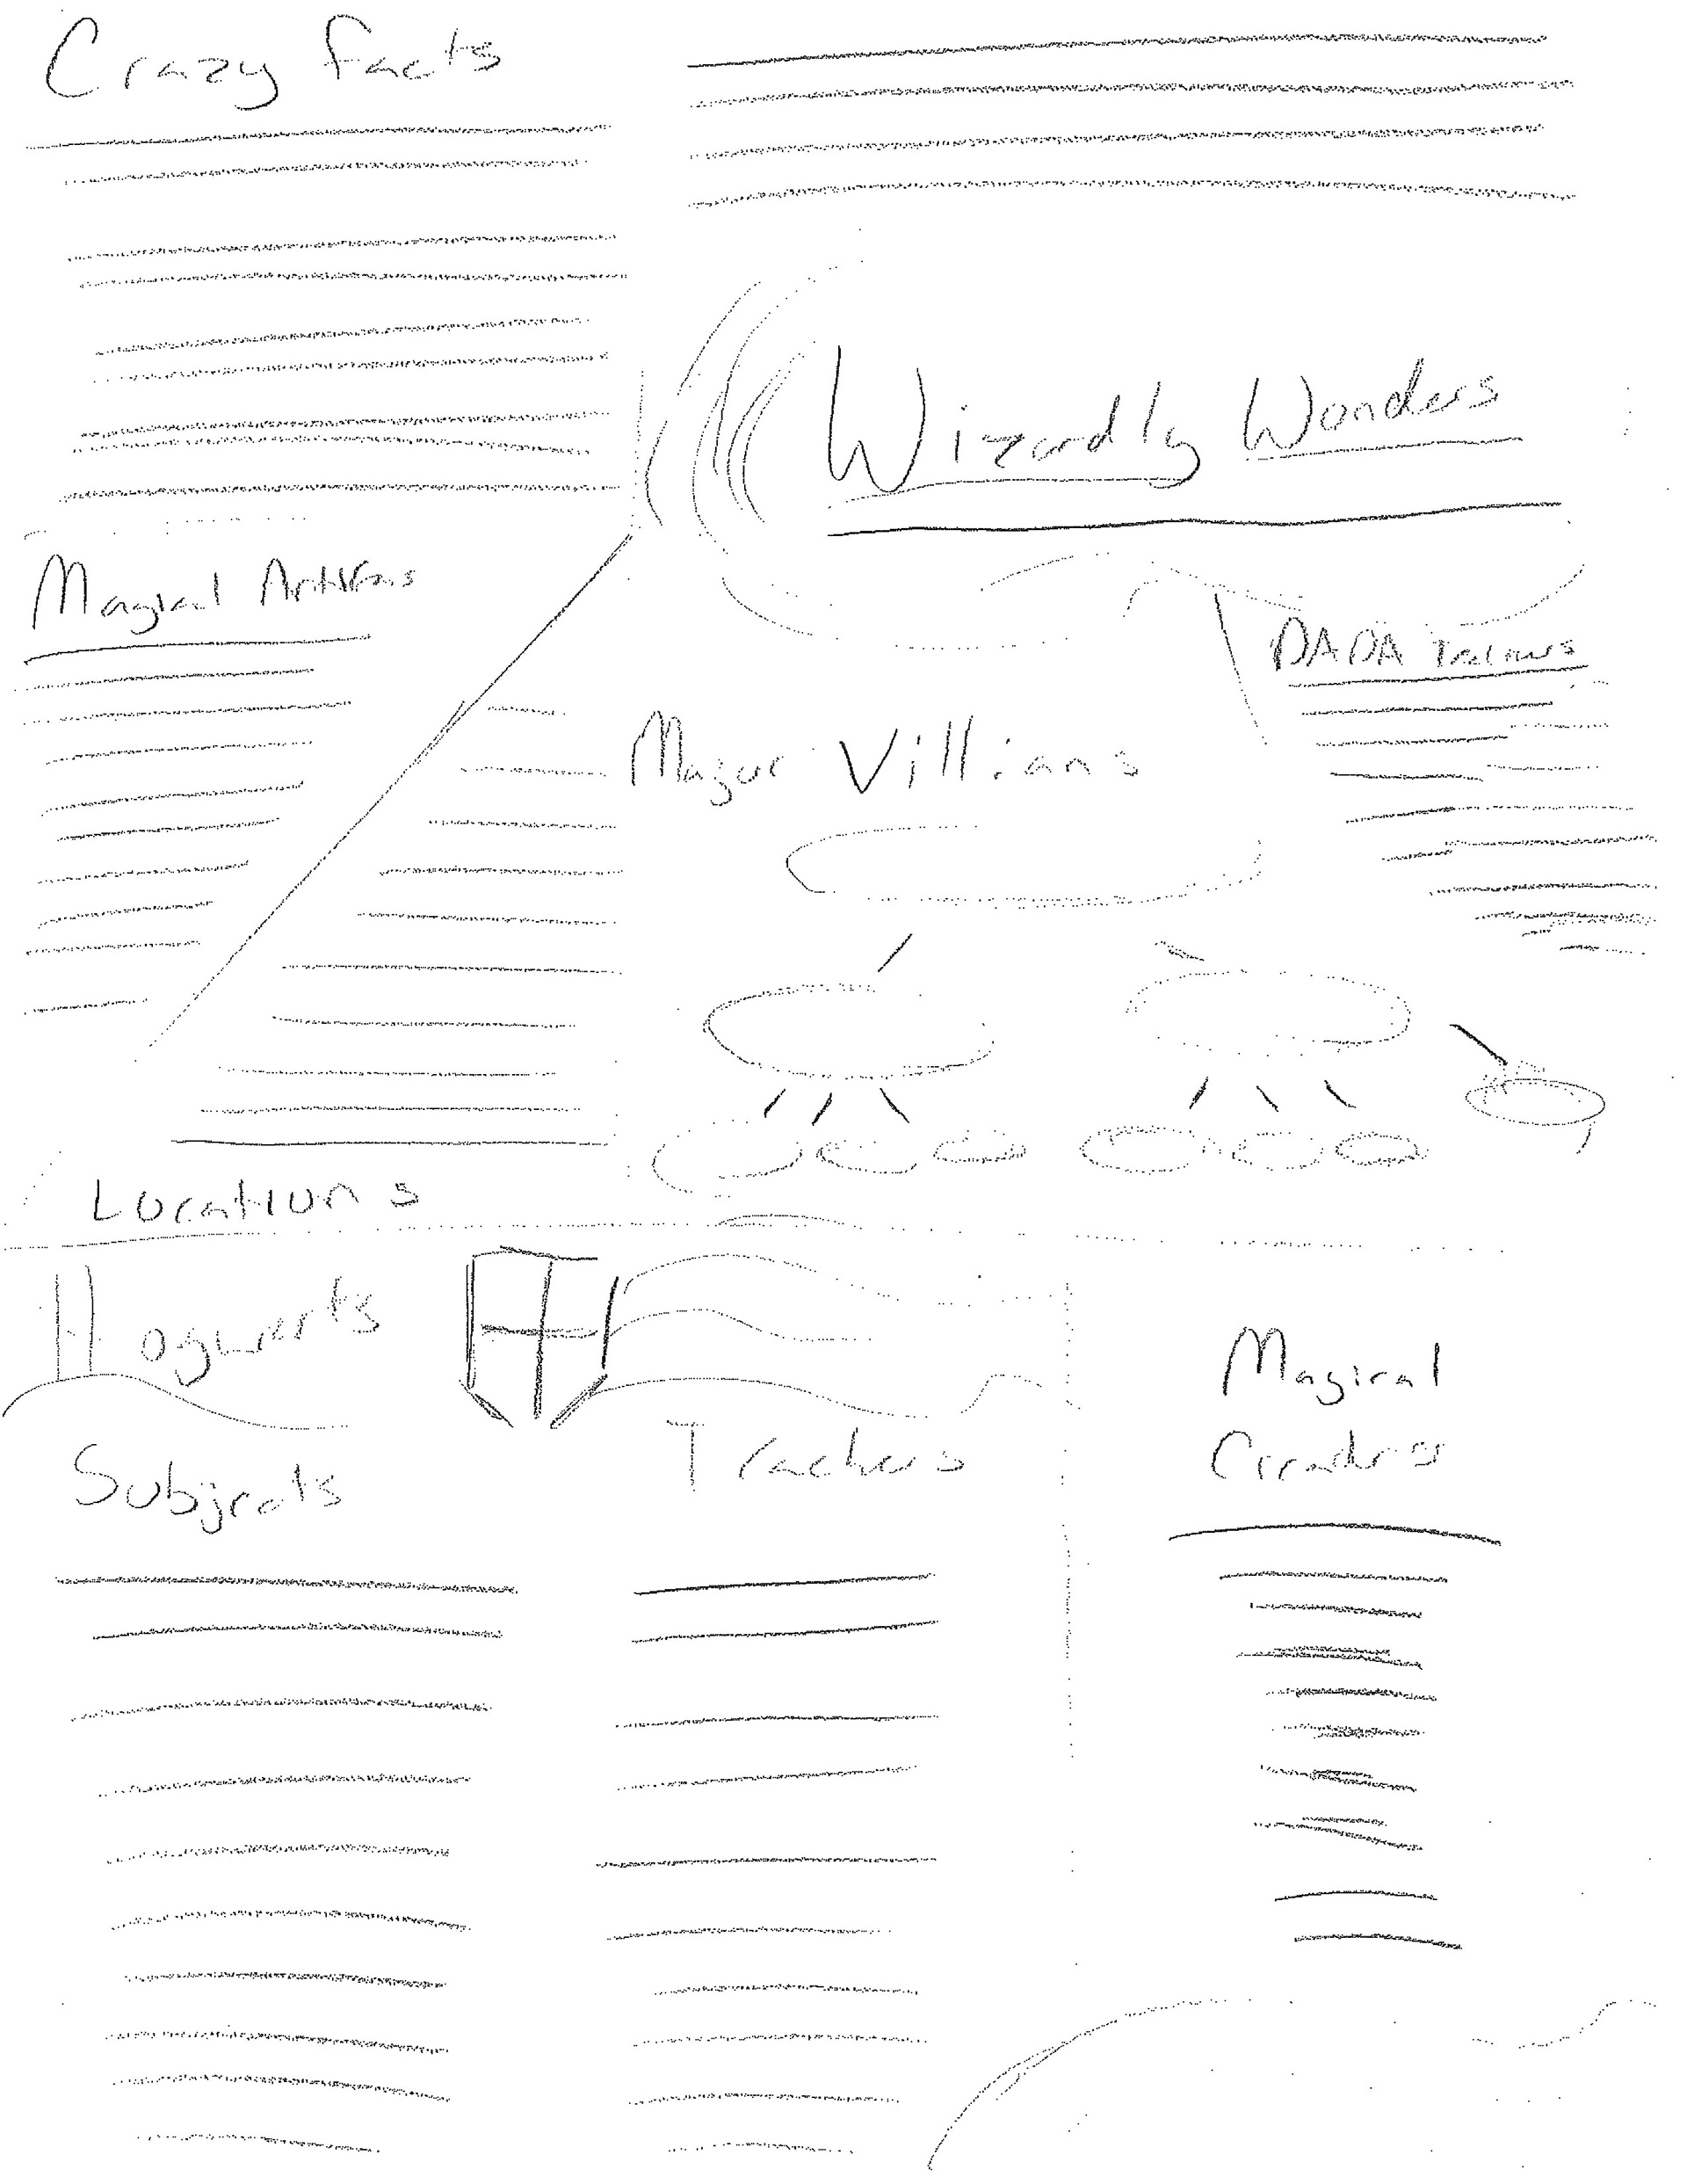 Crazy facts
Wizardly Wonders
Magical
DADA
Major Villians
Locations
Hogwarts
Subjects
Teachers
Magical